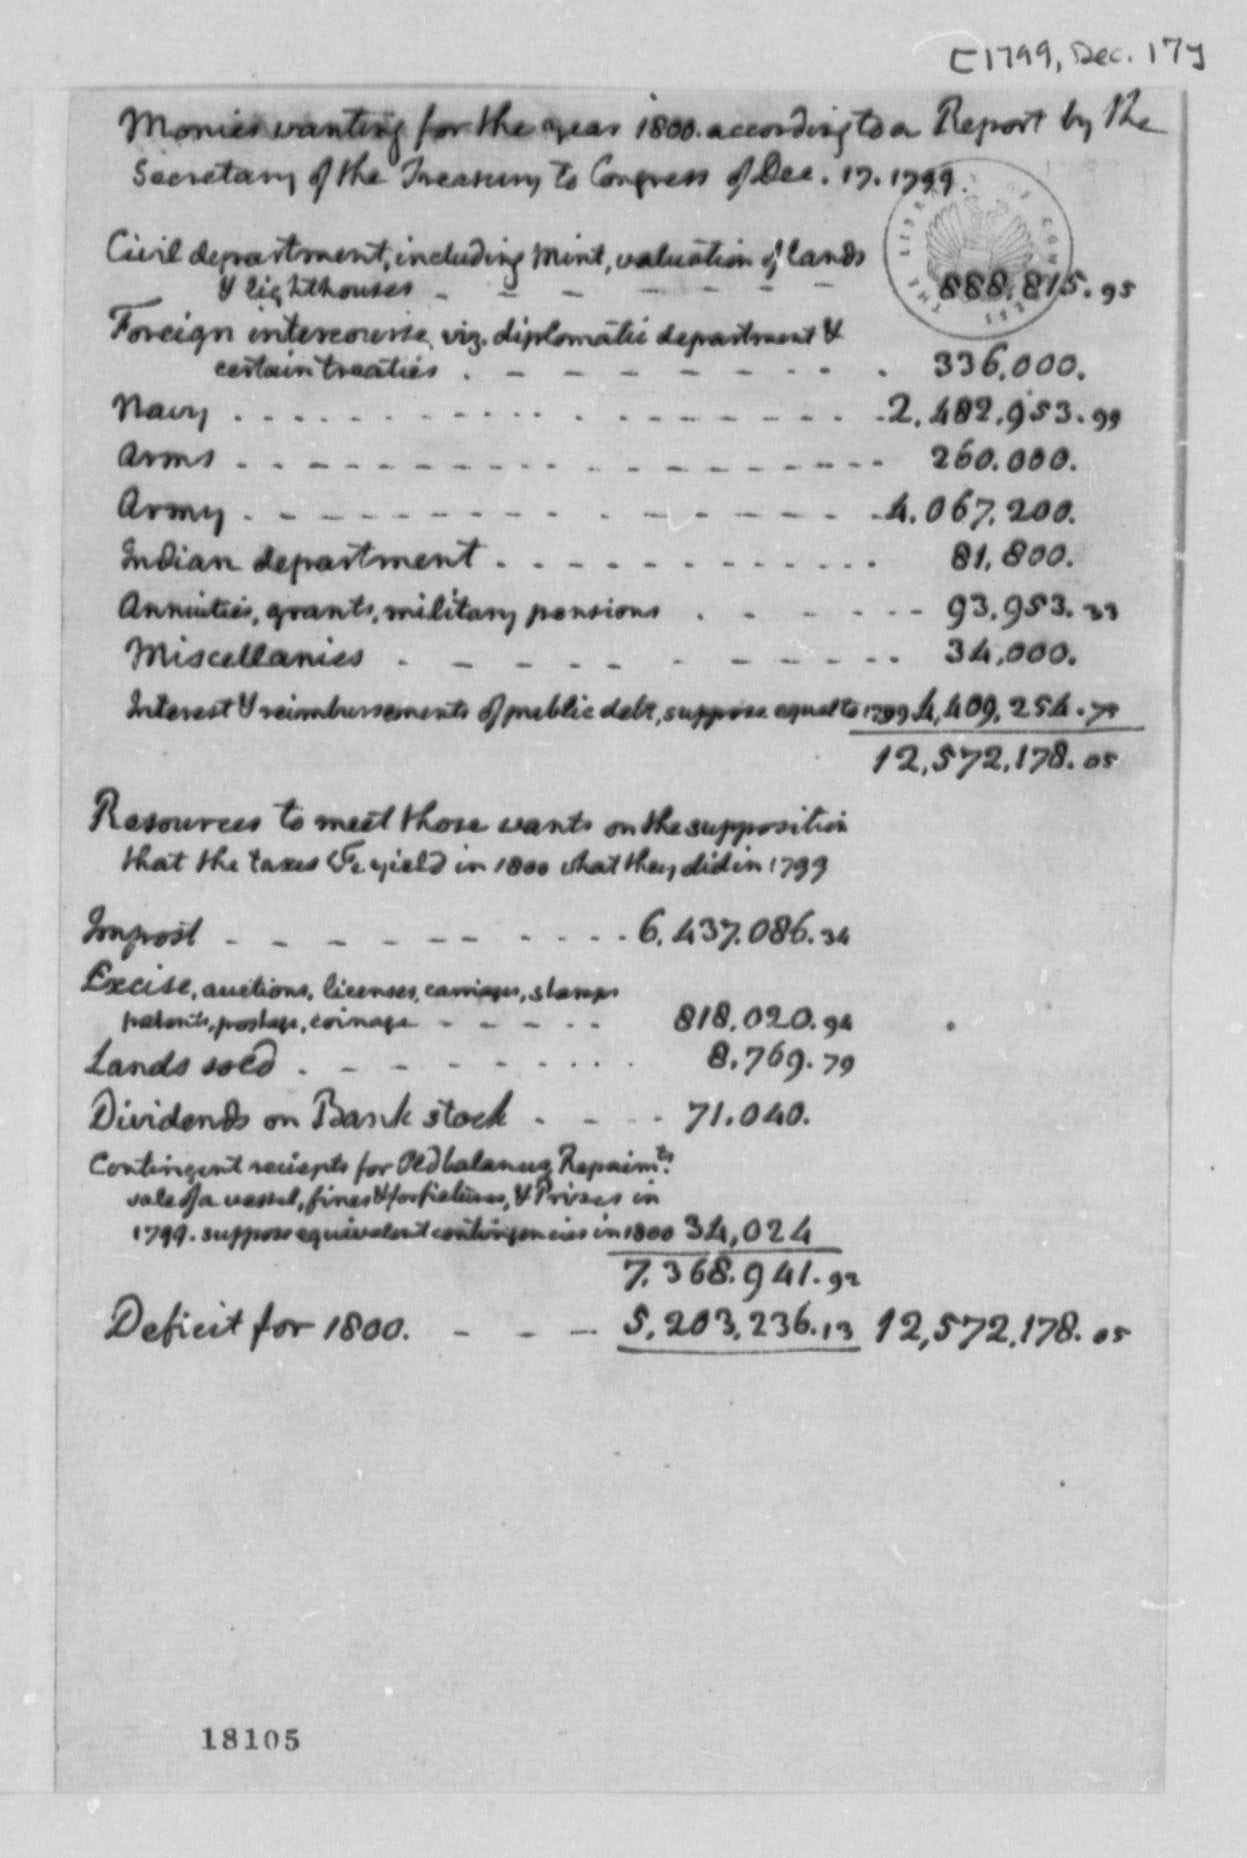 [1799, Dec. 17]
Monies wanting for the year 1800. according to a Report by the
Secretary of the Treasury to Congress of Dec. 17. 1799.
THE LIBRARY OF CONGRESS
Civil department, including Mint, valuation of lands
& lighthouses - - - - - - - 888,815.95
Foreign intercourse, viz. diplomatic department &
certain treaties . - - - - - - - . . 336,000.
Navy . . . . . . . . . . - - - - - - . 2,482,953.99
Arms . - - - - - - - - - - - - - - 260.000.
Army . - - - - - - - - . - - - - - - 4,067,200.
Indian department . . - - - - - - - . . . 81,800.
Annuities, grants, military pensions . - - - - - 93.953.33
Miscellanies . - - - - - - - - - . . 34,000.
Interest & reimbursements of public debt, suppose equal to 1799 4,409,254.78
12,572,178.05
Resources to meet those wants on the supposition
that the taxes &c yield in 1800 what they did in 1799
Impost - - - - - - - . . . . 6,437.086.34
Excise, auctions, licenses, carriages, stamps
patents, postage, coinage - - - - - . . 818,020.94
Lands sold . - - - - - - . . . . 8,769.79
Dividends on Bank stock . - - . . 71.040.
Contingent reciepts for Old balances, Repaimts.
sale of a vessel, fines & forfietures, & Prizes in
1799. suppose equivalent contingencies in 1800 34,024
7,368.941.92
Deficit for 1800. - - - - 5,203,236.13 12,572,178.05
18105